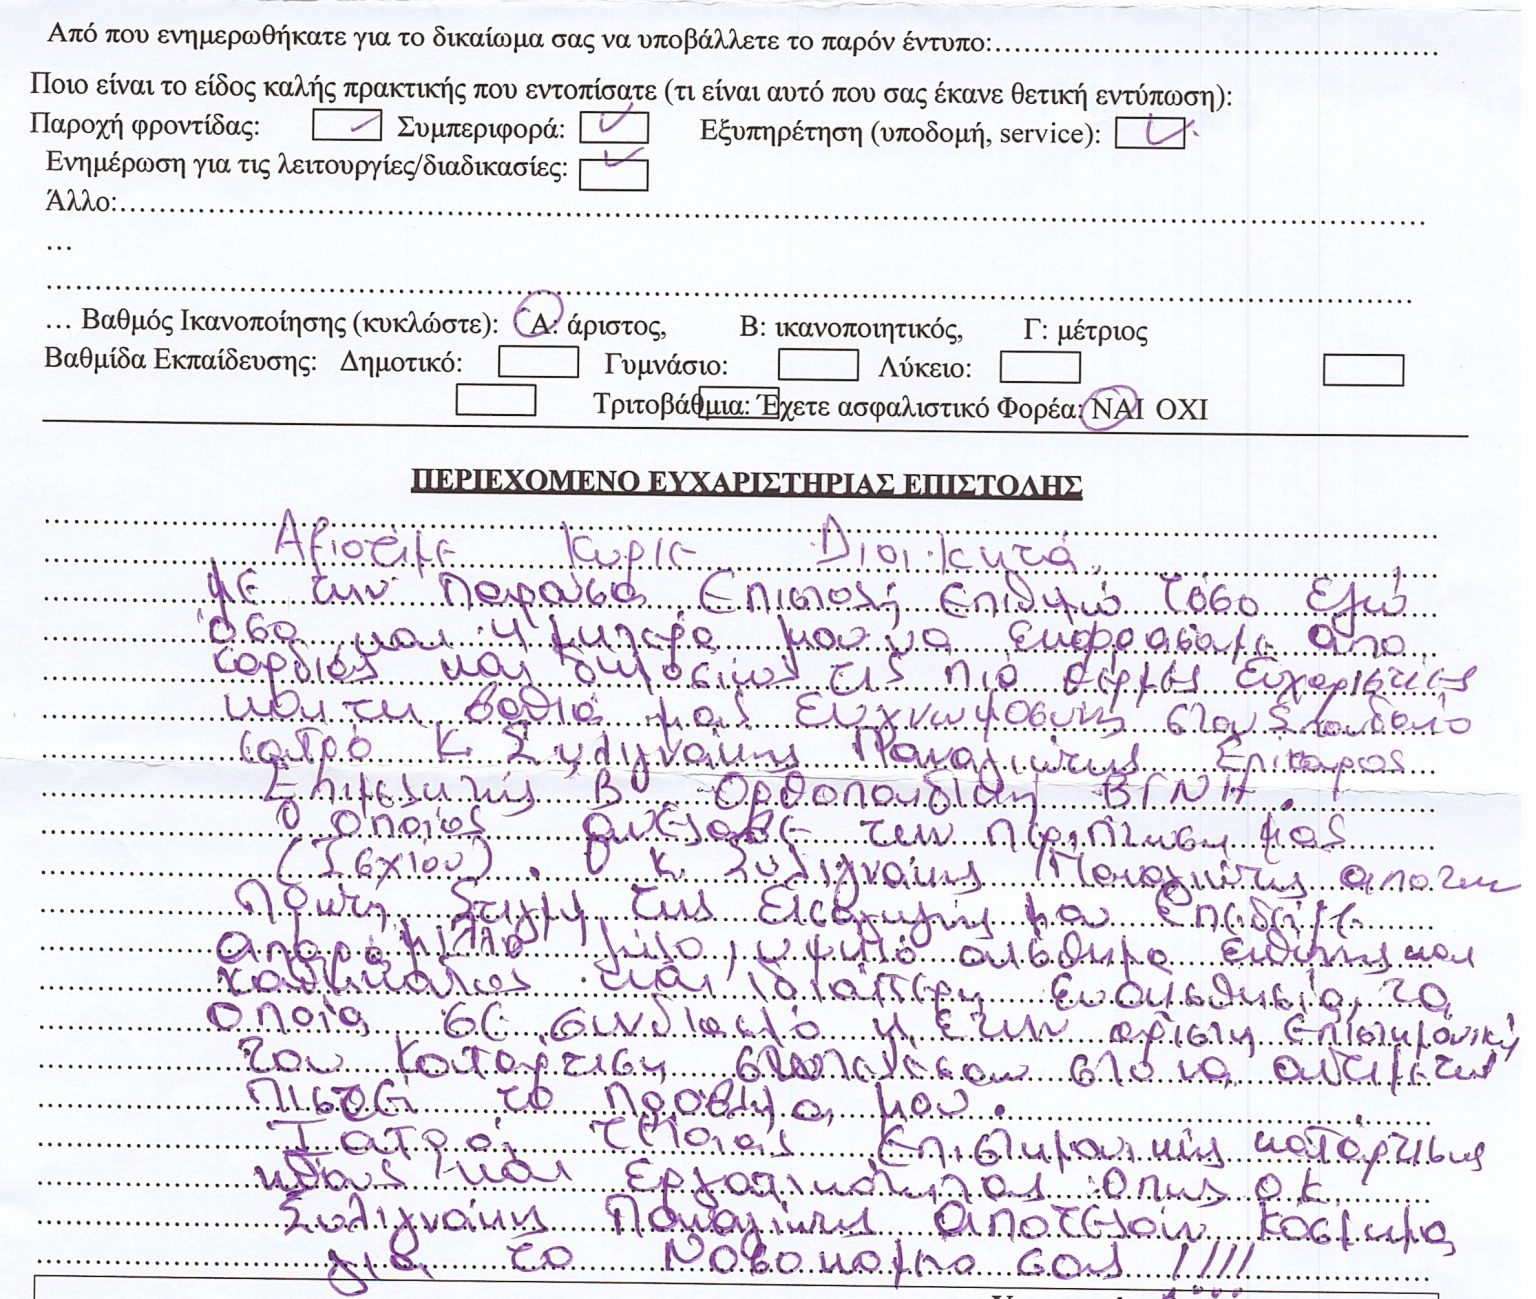 Από που ενημερωθήκατε για το δικαίωμα σας να υποβάλλετε το παρόν έντυπο:..........
Ποιο είναι το είδος καλής πρακτικής που εντοπίσατε (τι είναι αυτό που σας έκανε θετική εντύπωση):
Παροχή φροντίδας: Συμπεριφορά: Εξυπηρέτηση (υποδομή, service):
Ενημέρωση για τις λειτουργίες/διαδικασίες:
Άλλο:..........
…
..........
… Βαθμός Ικανοποίησης (κυκλώστε): Α: άριστος, Β: ικανοποιητικός, Γ: μέτριος
Βαθμίδα Εκπαίδευσης: Δημοτικό: Γυμνάσιο: Λύκειο:
Τριτοβάθμια: Έχετε ασφαλιστικό Φορέα: ΝΑΙ ΟΧΙ
ΠΕΡΙΕΧΟΜΕΝΟ ΕΥΧΑΡΙΣΤΗΡΙΑΣ ΕΠΙΣΤΟΛΗΣ
Αξιοτιμε Κυριε Διοικητά
με την παρουσα Επιστολή επιθυμώ τόσο Εγώ
όσο και η μητερα μου να εκφρασομε απο
καρδιας και δημοσιως τις πιο θερμες Ευχαριστιες
και τη βαθιά μας Ευγνωμοσυνη στον Σπουδαίο
ιατρό κ. Συλιγνάκης Παναγιώτης
Επιμελητής Β' Ορθοπαιδικη ΒΓΝΗ.
ο οποίος ανελαβε την περιπτωση μας
(Ισχίου). Ο κ. Συλιγνάκης Παναγιώτης απο την
Πρωτη Στιγμη της Εισαγωγής μου Επεδειξε
απαραμιλλο υψηλό αισθημα ευθυνης και
καθηκοντος και ιδιαίτερη ευαισθησία, τα
οποία σε συνδιασμό με την αριστη επιστημονική
του καταρτιση στο να αντιμετω
πιστεί το προβλημα μου.
Ιατροι τετοιας Επιστημονικής κατάρτισης
ηθους και εργατικότητας οπως ο κ.
Συλιγνάκης Παναγιώτης αποτελουν κόσμημα
για το Νοσοκομειο σας !!!!